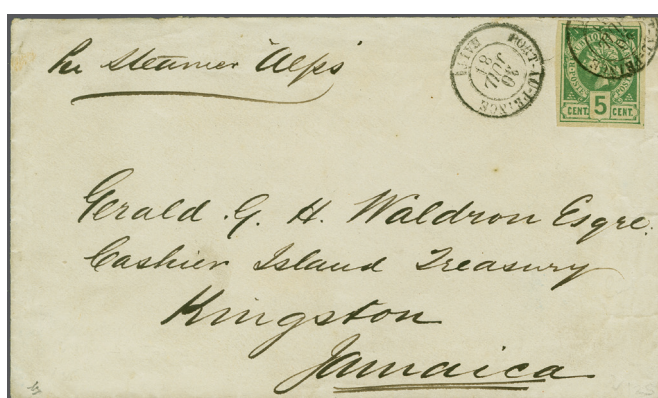 Per Steamer "Alps"
PORT-AU-PRINCE
HAITI
18
5
CENT. CENT.
Gerald. G. H. Waldron Esqre.
Cashier Island Treasury
Kingston
Jamaica